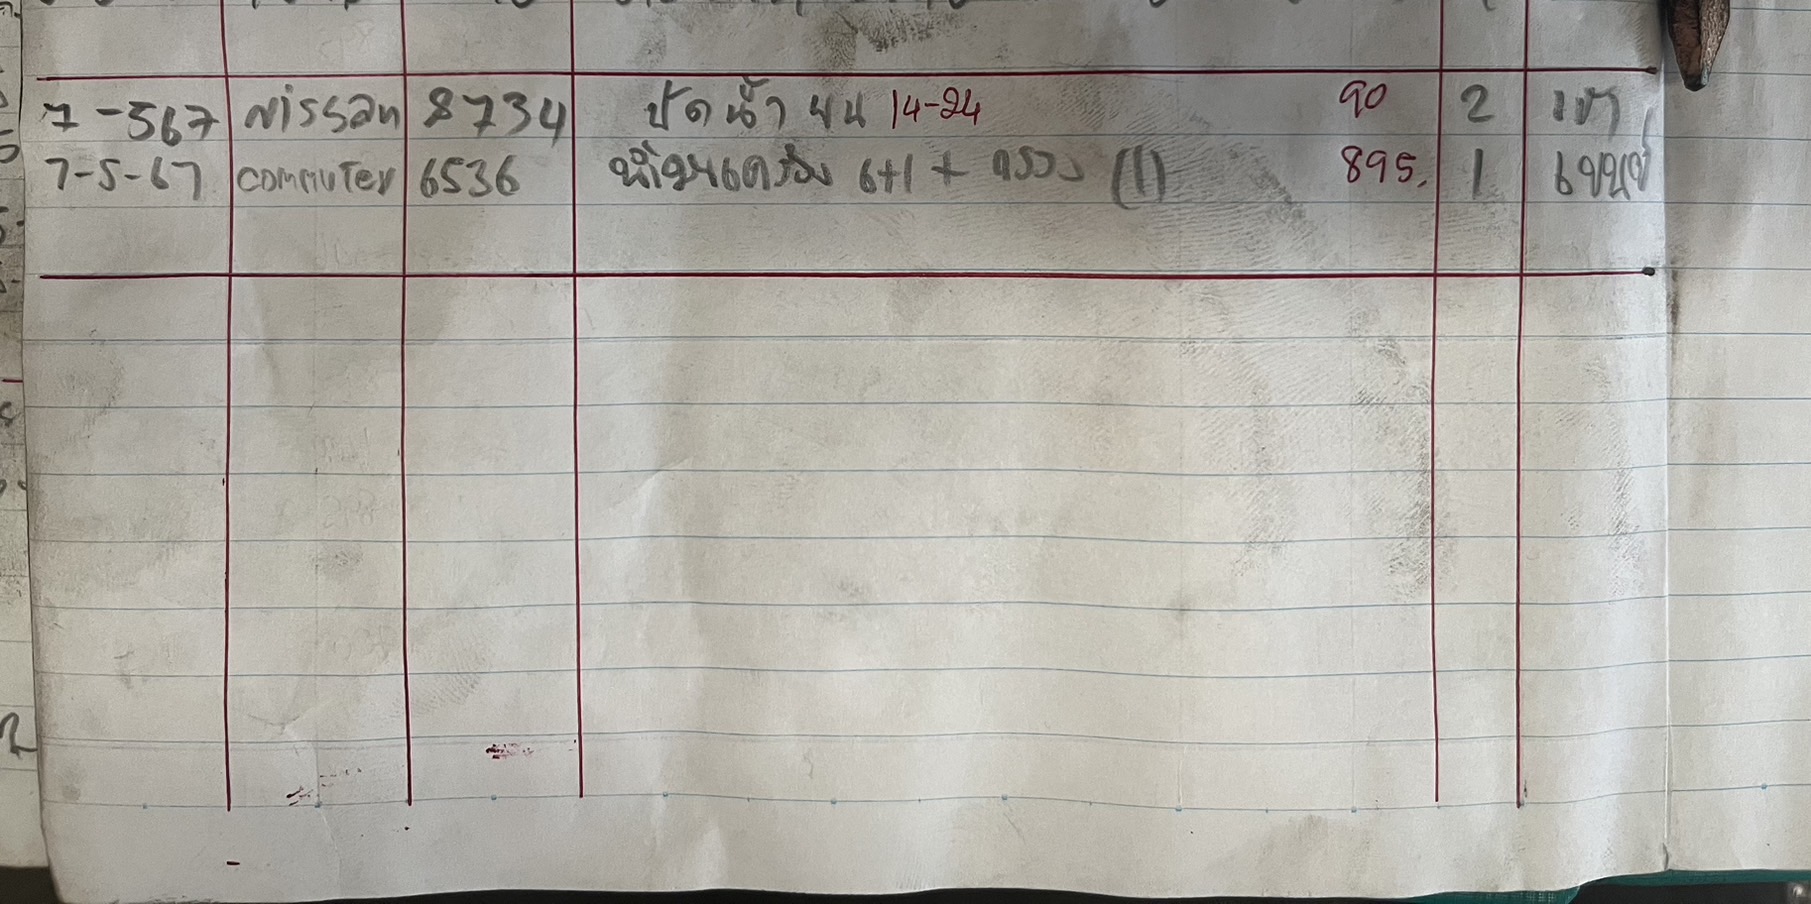 7-567 Nissan 8734 ปัดน้ำฝน 14-24 90 2 เก๋า
7-5-67 commuter 6536 น้ำมันเครื่อง 6+1 + กรอง (1) 895. 1